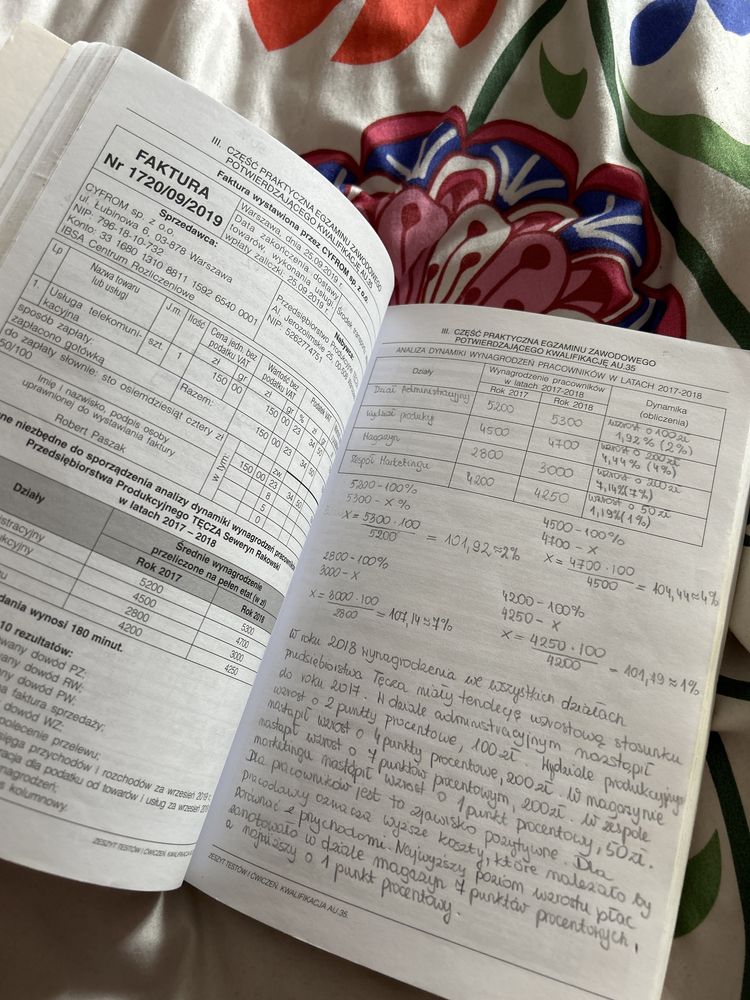 III. CZĘŚĆ PRAKTYCZNA EGZAMINU ZAWODOWEGO
POTWIERDZAJĄCEGO KWALIFIKACJĘ AU.35
FAKTURA
Nr 1720/09/2019
Faktura wystawiona przez CYFROM sp. z o.o.
Sprzedawca:
CYFROM sp. z o.o.
ul. Łubinowa 6, 03-878 Warszawa
NIP: 796.18.10.732
Konto: 33 1680 1310 8811 1592 6540 0001
IBSA Centrum Rozliczeniowe
Warszawa, dnia 25.09.2018 r.
Data zakończenia dostawy
towarów, wykonania usługi
wpłaty zaliczki: 25.09.2019 r.
Środek
Nabywca:
Przedsiębiorstwo Produkcyjne
Al. Jerozolimskie 25, 00-508
NIP: 5262714751
Lp Nazwa towaru lub usługi J.m. Ilość Cena jedn. bez podatku VAT Wartość bez podatku VAT Podatek VAT
zł gr zł gr % zł gr
1. Usługa telekomuni-
kacyjna szt. 1 150 00 150 00 23 34 50
Razem: 150 00 23 34 50
w tym: 150 00 23 34 50
zw.
8
5
0
sposób zapłaty:
zapłacono gotówką
do zapłaty słownie: sto osiemdziesiąt cztery zł
50/100
Imię i nazwisko, podpis osoby
uprawnionej do wystawiania faktury
Robert Paszak
ne niezbędne do sporządzenia analizy dynamiki wynagrodzeń
Przedsiębiorstwa Produkcyjnego TĘCZA Seweryn Rakowski
w latach 2017 – 2018
Działy Średnie wynagrodzenie
przeliczone na pełen etat (w zł)
Rok 2017 Rok 2018
istracyjny 5200 5300
kcyjny 4500 4700
2800 3000
u 4200 4250
dania wynosi 180 minut.
10 rezultatów:
owany dowód PZ;
any dowód RW;
ny dowód PW;
a faktura sprzedaży;
dowód WZ;
polecenie przelewu;
sięga przychodów i rozchodów za wrzesień 2019
racja dla podatku od towarów i usług za wrzesień
nagrodzeń;
s kolumnowy.
ZESZYT TESTÓW I ĆWICZEŃ. KWALIFIKACJA
III. CZĘŚĆ PRAKTYCZNA EGZAMINU ZAWODOWEGO
POTWIERDZAJĄCEGO KWALIFIKACJĘ AU.35
ANALIZA DYNAMIKI WYNAGRODZEŃ PRACOWNIKÓW W LATACH 2017-2018
Działy Wynagrodzenie pracowników
w latach 2017-2018 Dynamika
(obliczenia)
Rok 2017 Rok 2018
Dział Administracyjny 5200 5300 wzrost o 100zł
1,92% (2%)
Wydział produkcji 4500 4700 wzrost o 200zł
4,44% (4%)
Magazyn 2800 3000 wzrost o 200zł
7,14% (7%)
Zespół Marketingu 4200 4250 wzrost o 50zł
1,19% (1%)
5200 - 100%
5300 - x %
x = 5300 · 100
5200
= 101,92 ≈ 2%
4500 - 100%
4700 - x
x = 4700 · 100
4500
= 104,44 ≈ 4%
2800 - 100%
3000 - x
x = 3000 · 100
2800
= 107,14 ≈ 7%
4200 - 100%
4250 - x
x = 4250 · 100
4200
= 101,19 ≈ 1%
W roku 2018 wynagrodzenia we wszystkich działach
przedsiębiorstwa Tęcza miały tendecję wzrostową stosunku
do roku 2017. W dziale administracyjnym nazstąpił
wzrost o 2 punkty procentowe, 100zł. Wydziale produkcyjnym
nastąpił wzrost o 4 punkty procentowe, 200zł. W magazynie
nastąpił wzrost o 7 punktów procentowym, 200zł. W zespole
marketingu nastąpił wzrost o 1 punkt procentowy, 50zł.
Dla pracowników jest to zjawisko pozytywne. Dla
pracodawcy oznacza wyższe koszty, które należało by
porównać z przychodami. Najwyższy poziom wzrostu płac
zanotowało w dziale magazyn 7 punktów procentowych,
a najniższy o 1 punkt procentowy.
ZESZYT TESTÓW I ĆWICZEŃ. KWALIFIKACJA AU.35.